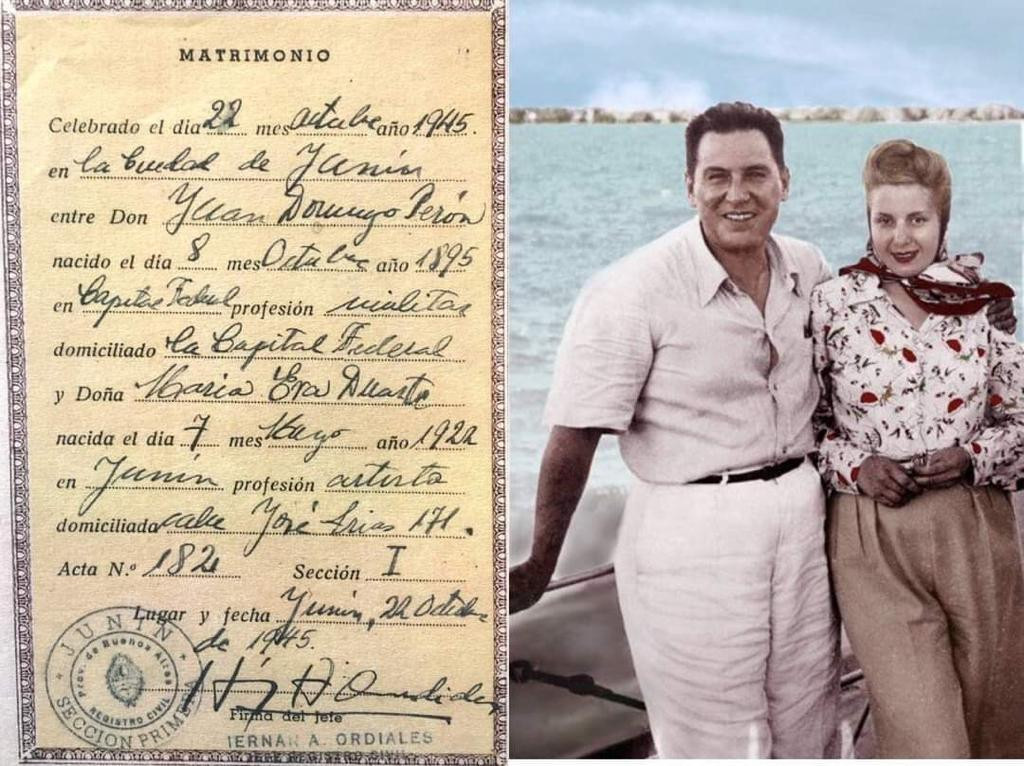 MATRIMONIO
Celebrado el dia 22 mes octubre año 1945.
en la Ciudad de Junín
entre Don Juan Domingo Perón
nacido el día 8 mes Octubre año 1895
en Capital Federal profesión militar
domiciliado La Capital Federal
y Doña María Eva Duarte
nacida el día 7 mes Mayo año 1922
en Junín profesión artista
domiciliada calle José Arias 171.
Acta N.º 182 Sección I
Lugar y fecha Junín, 22 Octubre
de 1945.
Firma del jefe
HERNAN A. ORDIALES
JEFE REGISTRO CIVIL
JUNIN
Prov. de Buenos Aires
REGISTRO CIVIL
SECCION PRIMERA